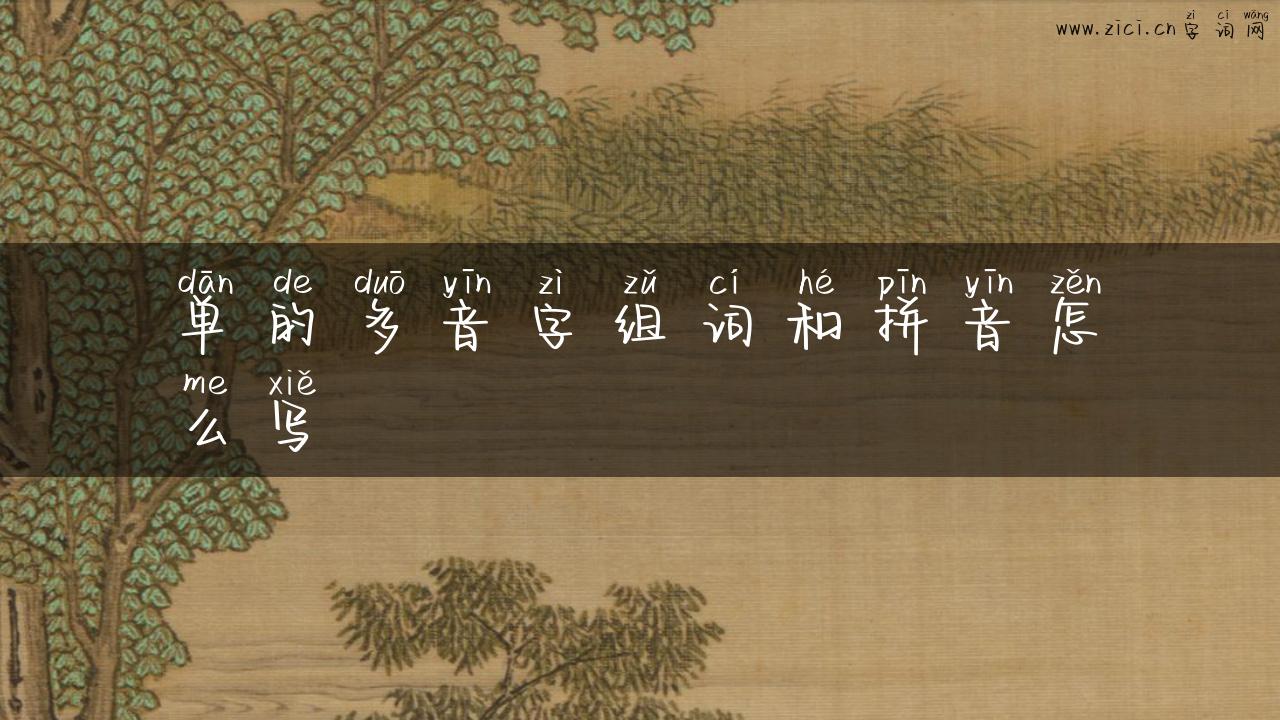 zì cí wǎng
www.zici.cn 字 词 网
dān de duō yīn zì zǔ cí hé pīn yīn zěn
单 的 多 音 字 组 词 和 拼 音 怎
me xiě
么 写